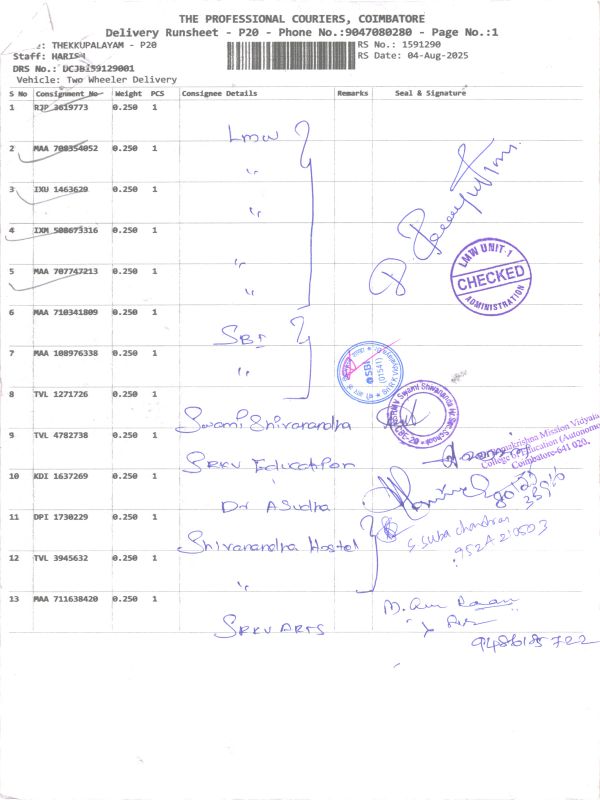 THE PROFESSIONAL COURIERS, COIMBATORE
Delivery Runsheet - P20 - Phone No.:9047080280 - Page No.:1
: THEKKUPALAYAM - P20
RS No.: 1591290
Staff: HARISH
RS Date: 04-Aug-2025
DRS No.: DCJB159129001
Vehicle: Two Wheeler Delivery
S No Consignment No Weight PCS Consignee Details Remarks Seal & Signature
1 RJP 3619773 0.250 1
Lmw
2 MAA 708354052 0.250 1
"
3 IXU 1463629 0.250 1
"
4 IXM 508673316 0.250 1
"
5 MAA 707747213 0.250 1
"
LMW UNIT-1
CHECKED
ADMINISTRATION
6 MAA 710341809 0.250 1
SBI
7 MAA 108976338 0.250 1
"
SBI
8 TVL 1271726 0.250 1
Swami Shivanandha
9 TVL 4782738 0.250 1
SRKV Education
Ramakrishna Mission Vidyalaya
College of Education (Autonomous)
Coimbatore-641 020.
10 KDI 1637269 0.250 1
Dr A Sudha
11 DPI 1730229 0.250 1
Shivanandha Hostel
S. Subha chandran
952A210503
12 TVL 3945632 0.250 1
"
13 MAA 711638420 0.250 1
SRKV ARTS
9486185722